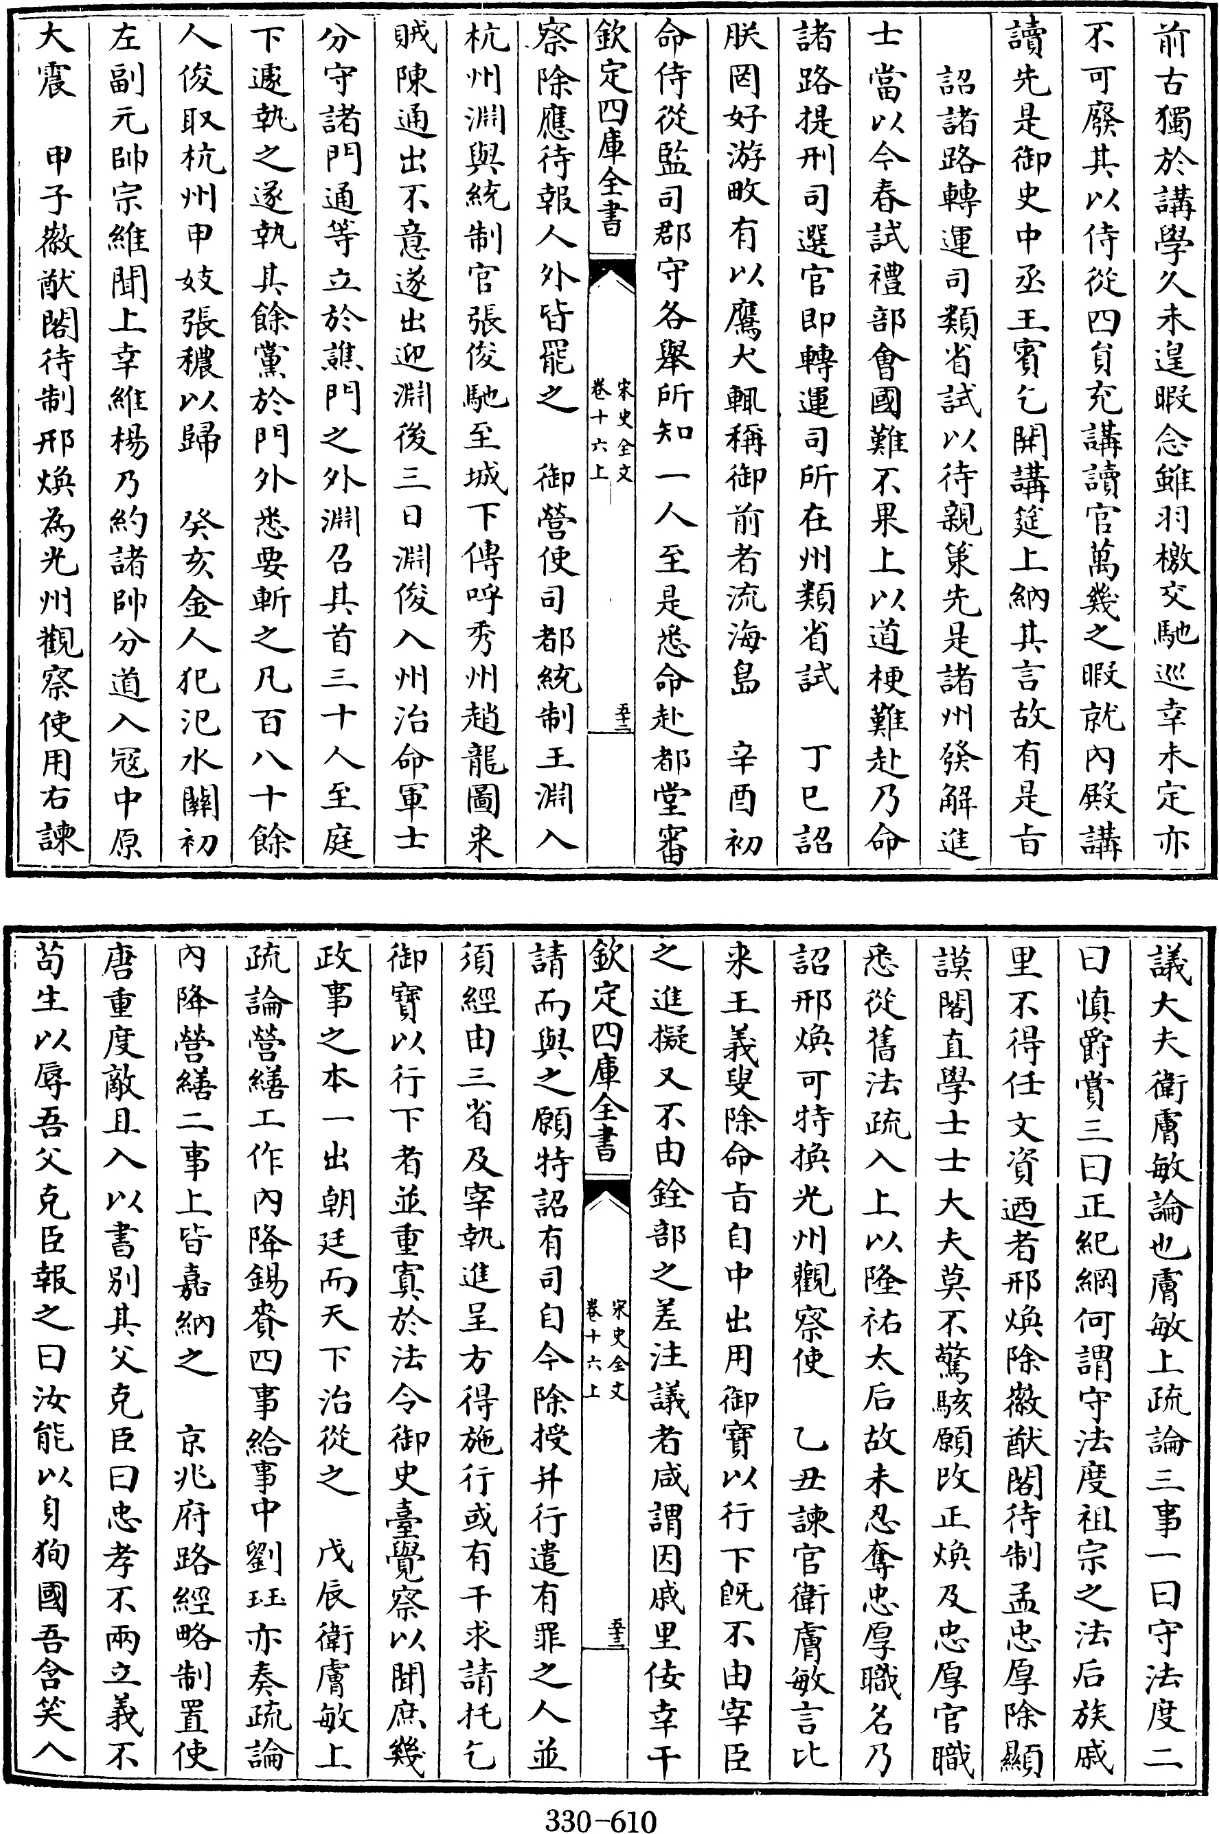 前古獨於講學久未遑暇念雖羽檄交馳巡幸未定亦
不可廢其以侍從四員充講讀官萬幾之暇就內殿講
讀先是御史中丞王賓乞開講筵上納其言故有是㫖
詔諸路轉運司類省試以待親策先是諸州發解進
士當以今春試禮部會國難不果上以道梗難赴乃命
諸路提刑司選官即轉運司所在州類省試　丁巳詔
朕罔好游畋有以鷹犬輒稱御前者流海島　辛酉初
命侍從監司郡守各舉所知一人至是悉命赴都堂審
欽定四庫全書
宋史全文
卷十六上
五十二
察除應待報人外皆罷之　御營使司都統制王淵入
杭州淵與統制官張俊馳至城下傳呼秀州趙龍圖来
賊陳通出不意遂出迎淵後三日淵俊入州治命軍士
分守諸門通等立於譙門之外淵召其首三十人至庭
下遽執之遂執其餘黨於門外悉要斬之凡百八十餘
人俊取杭州甲妓張穠以歸　癸亥金人犯氾水關初
左副元帥宗維聞上幸維楊乃約諸帥分道入冦中原
大震　甲子徽猷閣待制邢煥為光州觀察使用右諫
議大夫衛膚敏論也膚敏上疏論三事一曰守法度二
曰慎爵賞三曰正紀綱何謂守法度祖宗之法后族戚
里不得任文資迺者邢煥除徽猷閣待制孟忠厚除顯
謨閣直學士士大夫莫不驚駭願改正煥及忠厚官職
悉從舊法疏入上以隆祐太后故未忍奪忠厚職名乃
詔邢煥可特換光州觀察使　乙丑諫官衛膚敏言比
来王義叟除命㫖自中出用御寶以行下既不由宰臣
之進擬又不由銓部之差注議者咸謂因戚里侫幸干
欽定四庫全書
宋史全文
卷十六上
五十三
請而與之願特詔有司自今除授并行遣有罪之人並
須經由三省及宰執進呈方得施行或有干求請托乞
御寶以行下者並重寘於法令御史臺覺察以聞庶幾
政事之本一出朝廷而天下治從之　戊辰衛膚敏上
疏論營繕工作內降錫賚四事給事中劉珏亦奏疏論
內降營繕二事上皆嘉納之　京兆府路經略制置使
唐重度敵且入以書别其父克臣曰忠孝不兩立義不
苟生以辱吾父克臣報之曰汝能以身狥國吾含笑入
330-610